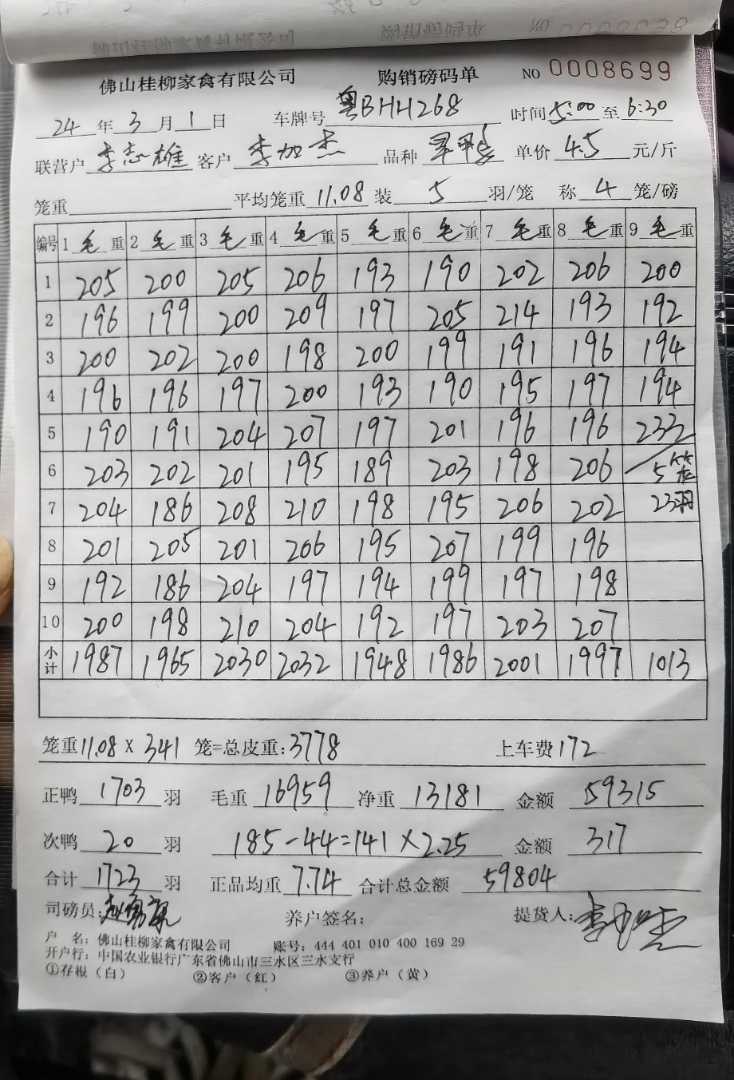 佛山桂柳家禽有限公司 购销磅码单 NO 0008699
24年3月1日 车牌号 粤BHH268 时间5:00至6:30
联营户 李志雄 客户 李加杰 品种 旱鸭 单价 4.5 元/斤
笼重 平均笼重 11.08 装 5 羽/笼 称 4 笼/磅
编号 1毛重 2毛重 3毛重 4毛重 5毛重 6毛重 7毛重 8毛重 9毛重
1 205 200 205 206 193 190 202 206 200
2 196 199 200 209 197 205 214 193 192
3 200 202 200 198 200 199 191 196 194
4 196 196 197 200 193 190 195 197 194
5 190 191 204 207 197 201 196 196 233
6 203 202 201 195 189 203 198 206 5笼
7 204 186 208 210 198 195 206 202 23羽
8 201 205 201 206 195 207 199 196
9 192 186 204 197 194 199 197 198
10 200 198 210 204 192 197 203 207
小计 1987 1965 2030 2032 1948 1986 2001 1997 1013
笼重11.08×341笼=总皮重:3778 上车费172
正鸭 1703 羽 毛重 16959 净重 13181 金额 59315
次鸭 20 羽 185-44=141×2.25 金额 317
合计 1723 羽 正品均重 7.74 合计总金额 59804
司磅员: 养户签名: 提货人:李加杰
户 名:佛山桂柳家禽有限公司 账号:444 401 010 400 169 29
开户行:中国农业银行广东省佛山市三水区三水支行
①存根(白) ②客户(红) ③养户(黄)